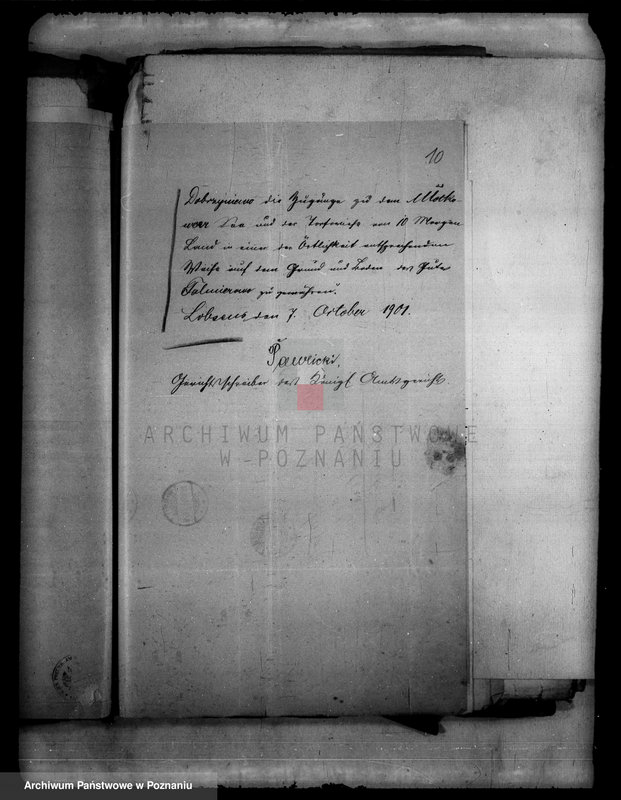 10
Dobrzyniewo die Zugänge zu dem Mösko-
wer See und der Torfwiese von 10 Morgen
Land in einer der Örtlichkeit entsprechenden
Weise auf dem Grund und Boden des Guts
Falmierowo zu gewähren."
Lobsens, den 7. October 1901.
Pawlicki,
Gerichtsschreiber des Königl Amtsgerichts.
ARCHIWUM PAŃSTWOWE
W POZNANIU
Archiwum Państwowe w Poznaniu